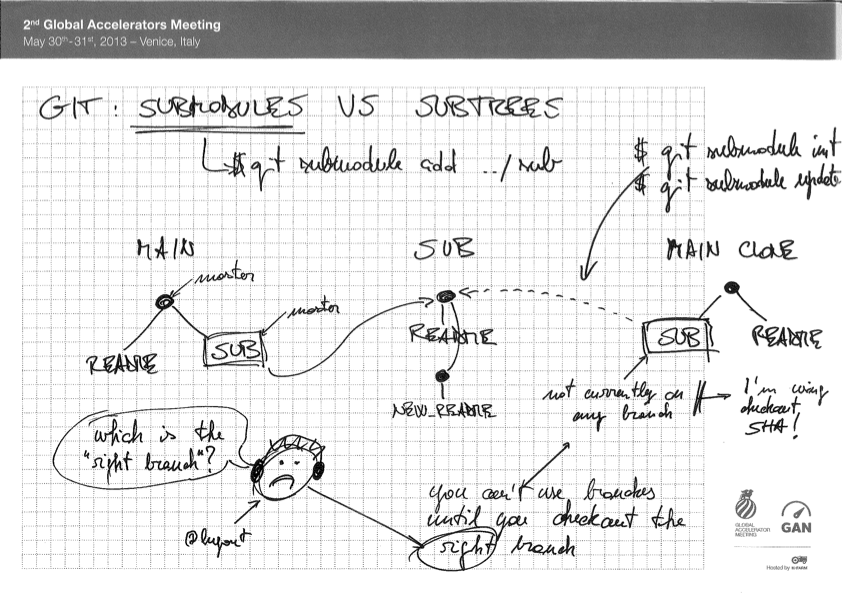 2nd Global Accelerators Meeting
May 30th-31st, 2013 – Venice, Italy
GIT: SUBMODULES VS SUBTREES
$ git submodule add ../sub
$ git submodule init
$ git submodule update
MAIN
SUB
MAIN CLONE
master
master
README
SUB
README
NEW_README
SUB
README
not currently on
any branch
I'm using
checkout
SHA!
which is the
"right branch"?
you can't use branches
until you checkout the
right branch
GLOBAL
ACCELERATOR
MEETING
GAN
Hosted by H-FARM